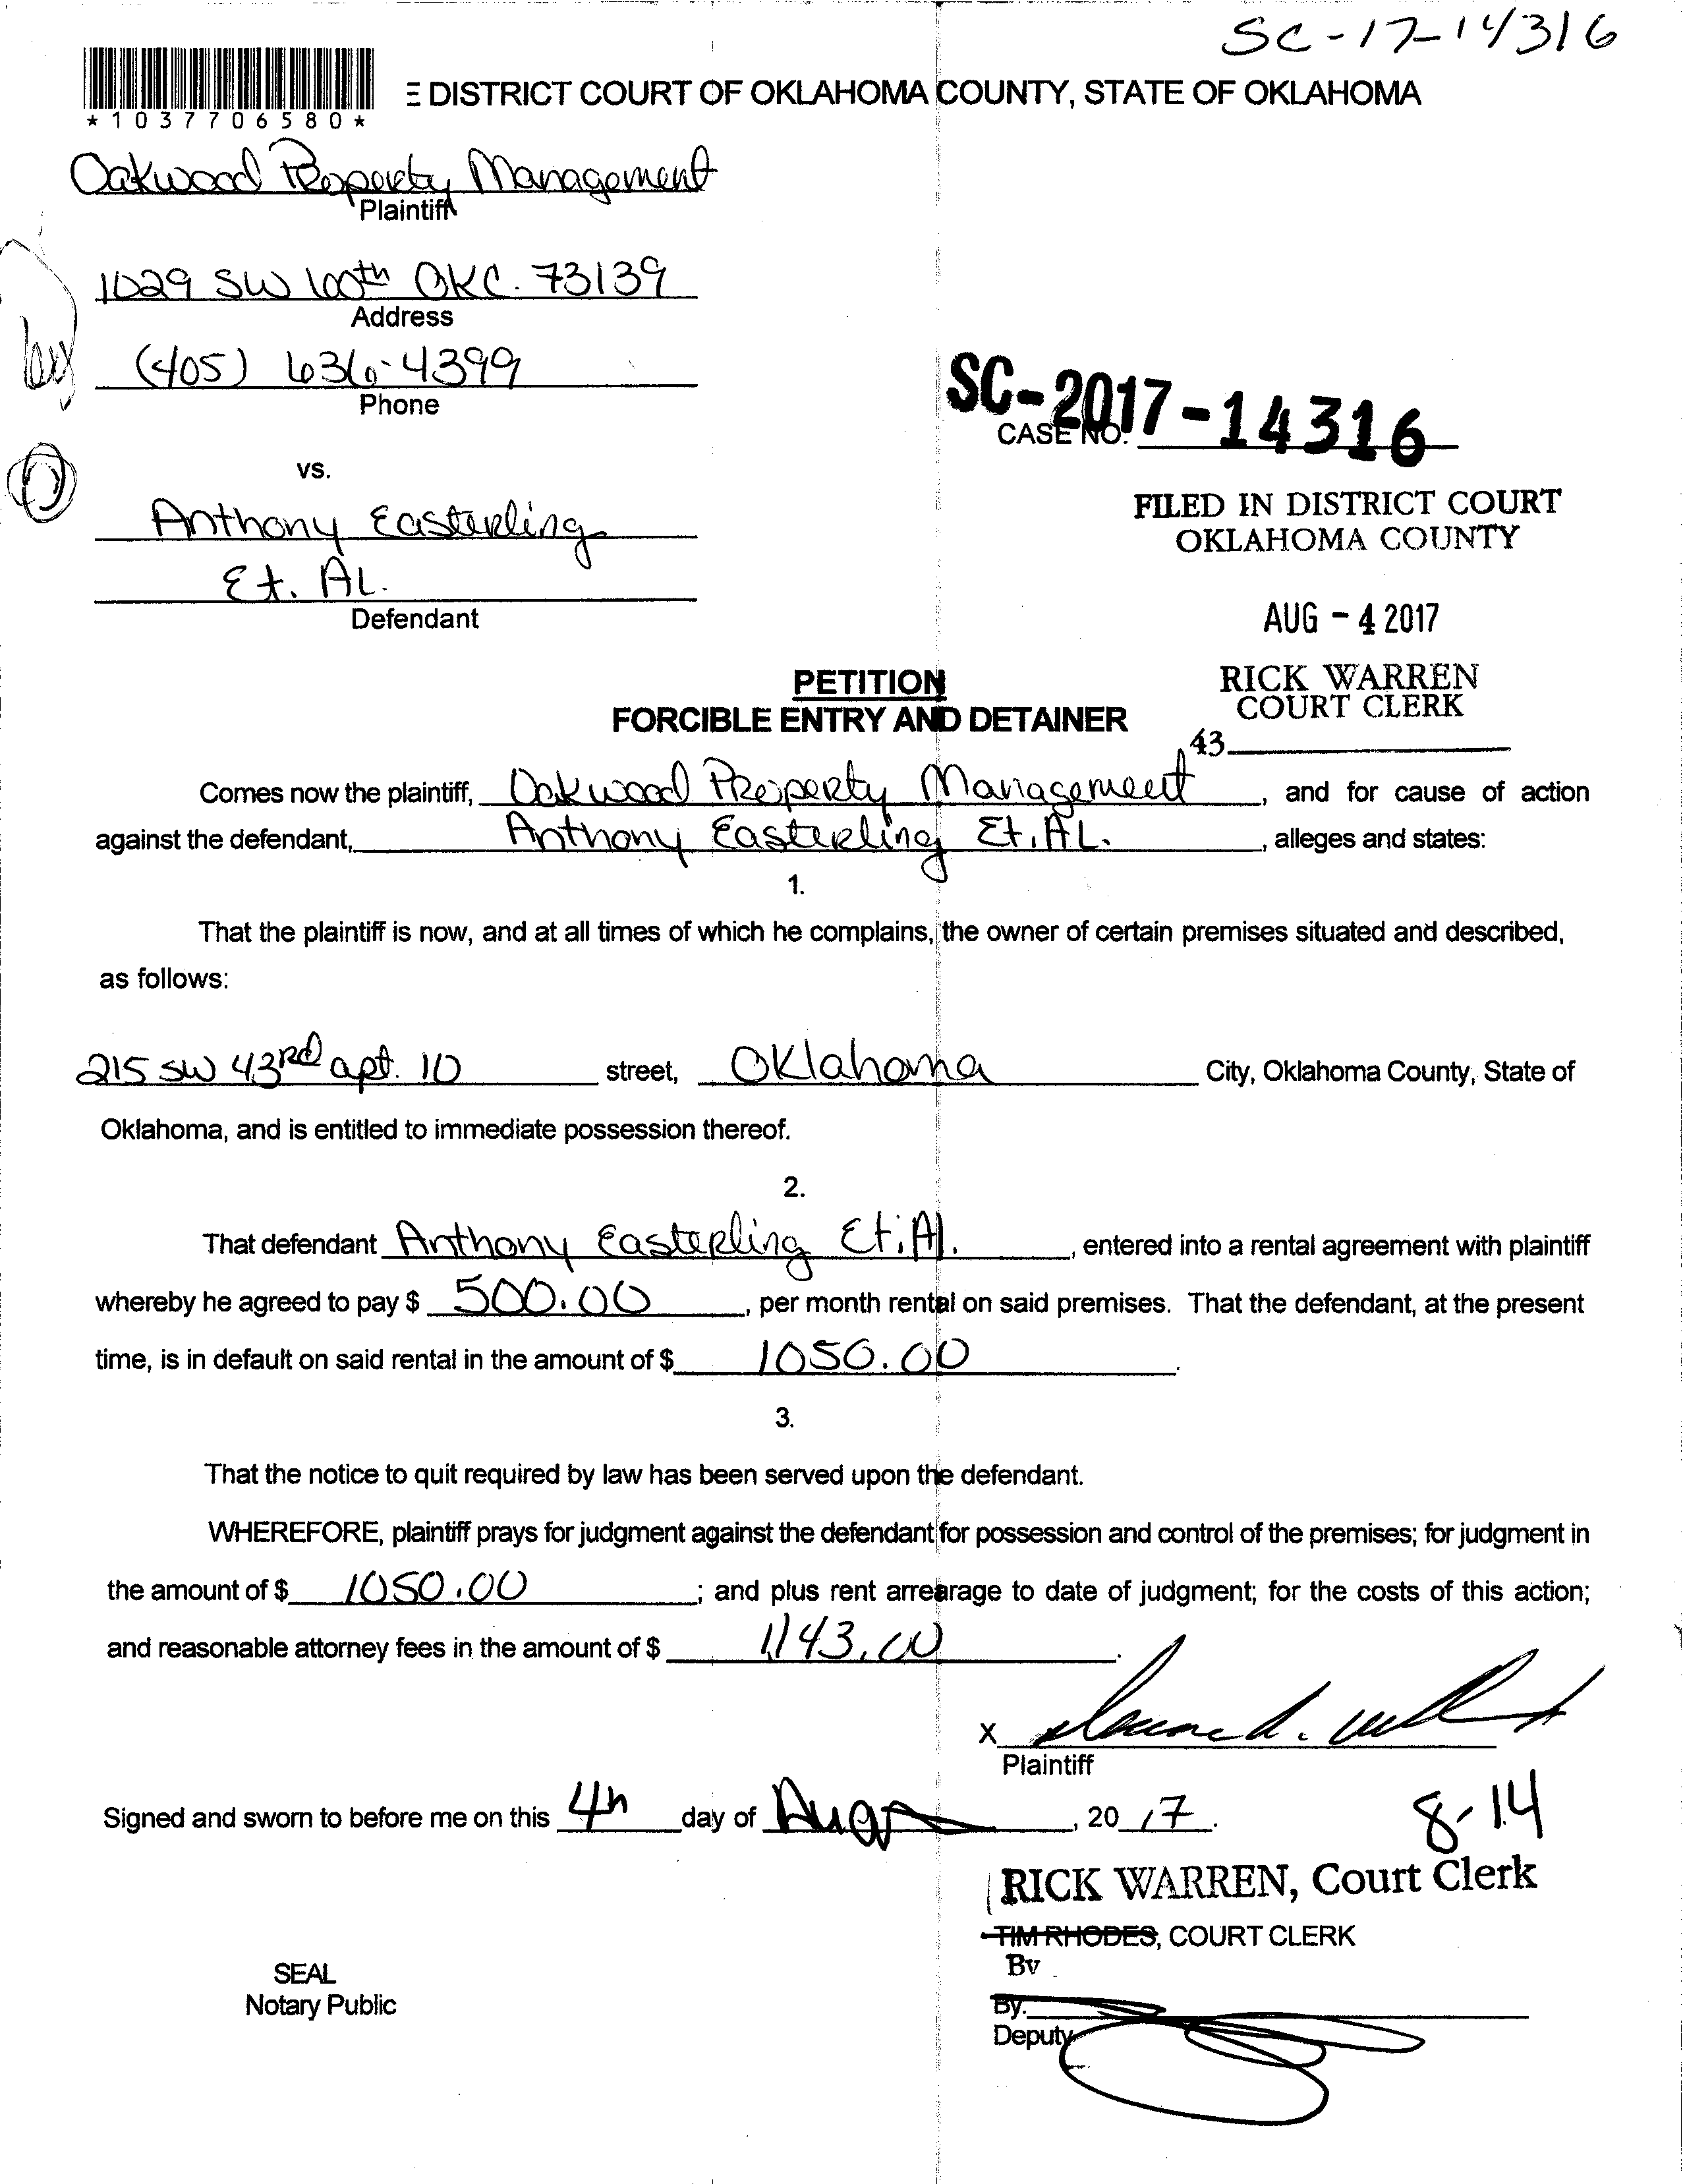 SC-17-14316
*1037706580*
E DISTRICT COURT OF OKLAHOMA COUNTY, STATE OF OKLAHOMA
Oakwood Property Management
Plaintiff
1029 SW 100th OKC. 73139
Address
(405) 636-4399
Phone
SC-2017-14316
CASE NO.
vs.
Anthony Easterling
Et. AL.
Defendant
FILED IN DISTRICT COURT
OKLAHOMA COUNTY
AUG - 4 2017
RICK WARREN
COURT CLERK
43
PETITION
FORCIBLE ENTRY AND DETAINER
Comes now the plaintiff, Oakwood Property Management, and for cause of action
against the defendant, Anthony Easterling Et. AL., alleges and states:
1.
That the plaintiff is now, and at all times of which he complains, the owner of certain premises situated and described,
as follows:
215 SW 43rd apt. 10 street, Oklahoma City, Oklahoma County, State of
Oklahoma, and is entitled to immediate possession thereof.
2.
That defendant Anthony Easterling Et. Al., entered into a rental agreement with plaintiff
whereby he agreed to pay $ 500.00, per month rental on said premises. That the defendant, at the present
time, is in default on said rental in the amount of $ 1050.00.
3.
That the notice to quit required by law has been served upon the defendant.
WHEREFORE, plaintiff prays for judgment against the defendant for possession and control of the premises; for judgment in
the amount of $ 1050.00; and plus rent arrearage to date of judgment; for the costs of this action;
and reasonable attorney fees in the amount of $ 1,143.00.
X
Plaintiff
Signed and sworn to before me on this 4th day of Aug, 2017.
8-14
RICK WARREN, Court Clerk
TIM RHODES, COURT CLERK
By
By:
Deputy
SEAL
Notary Public